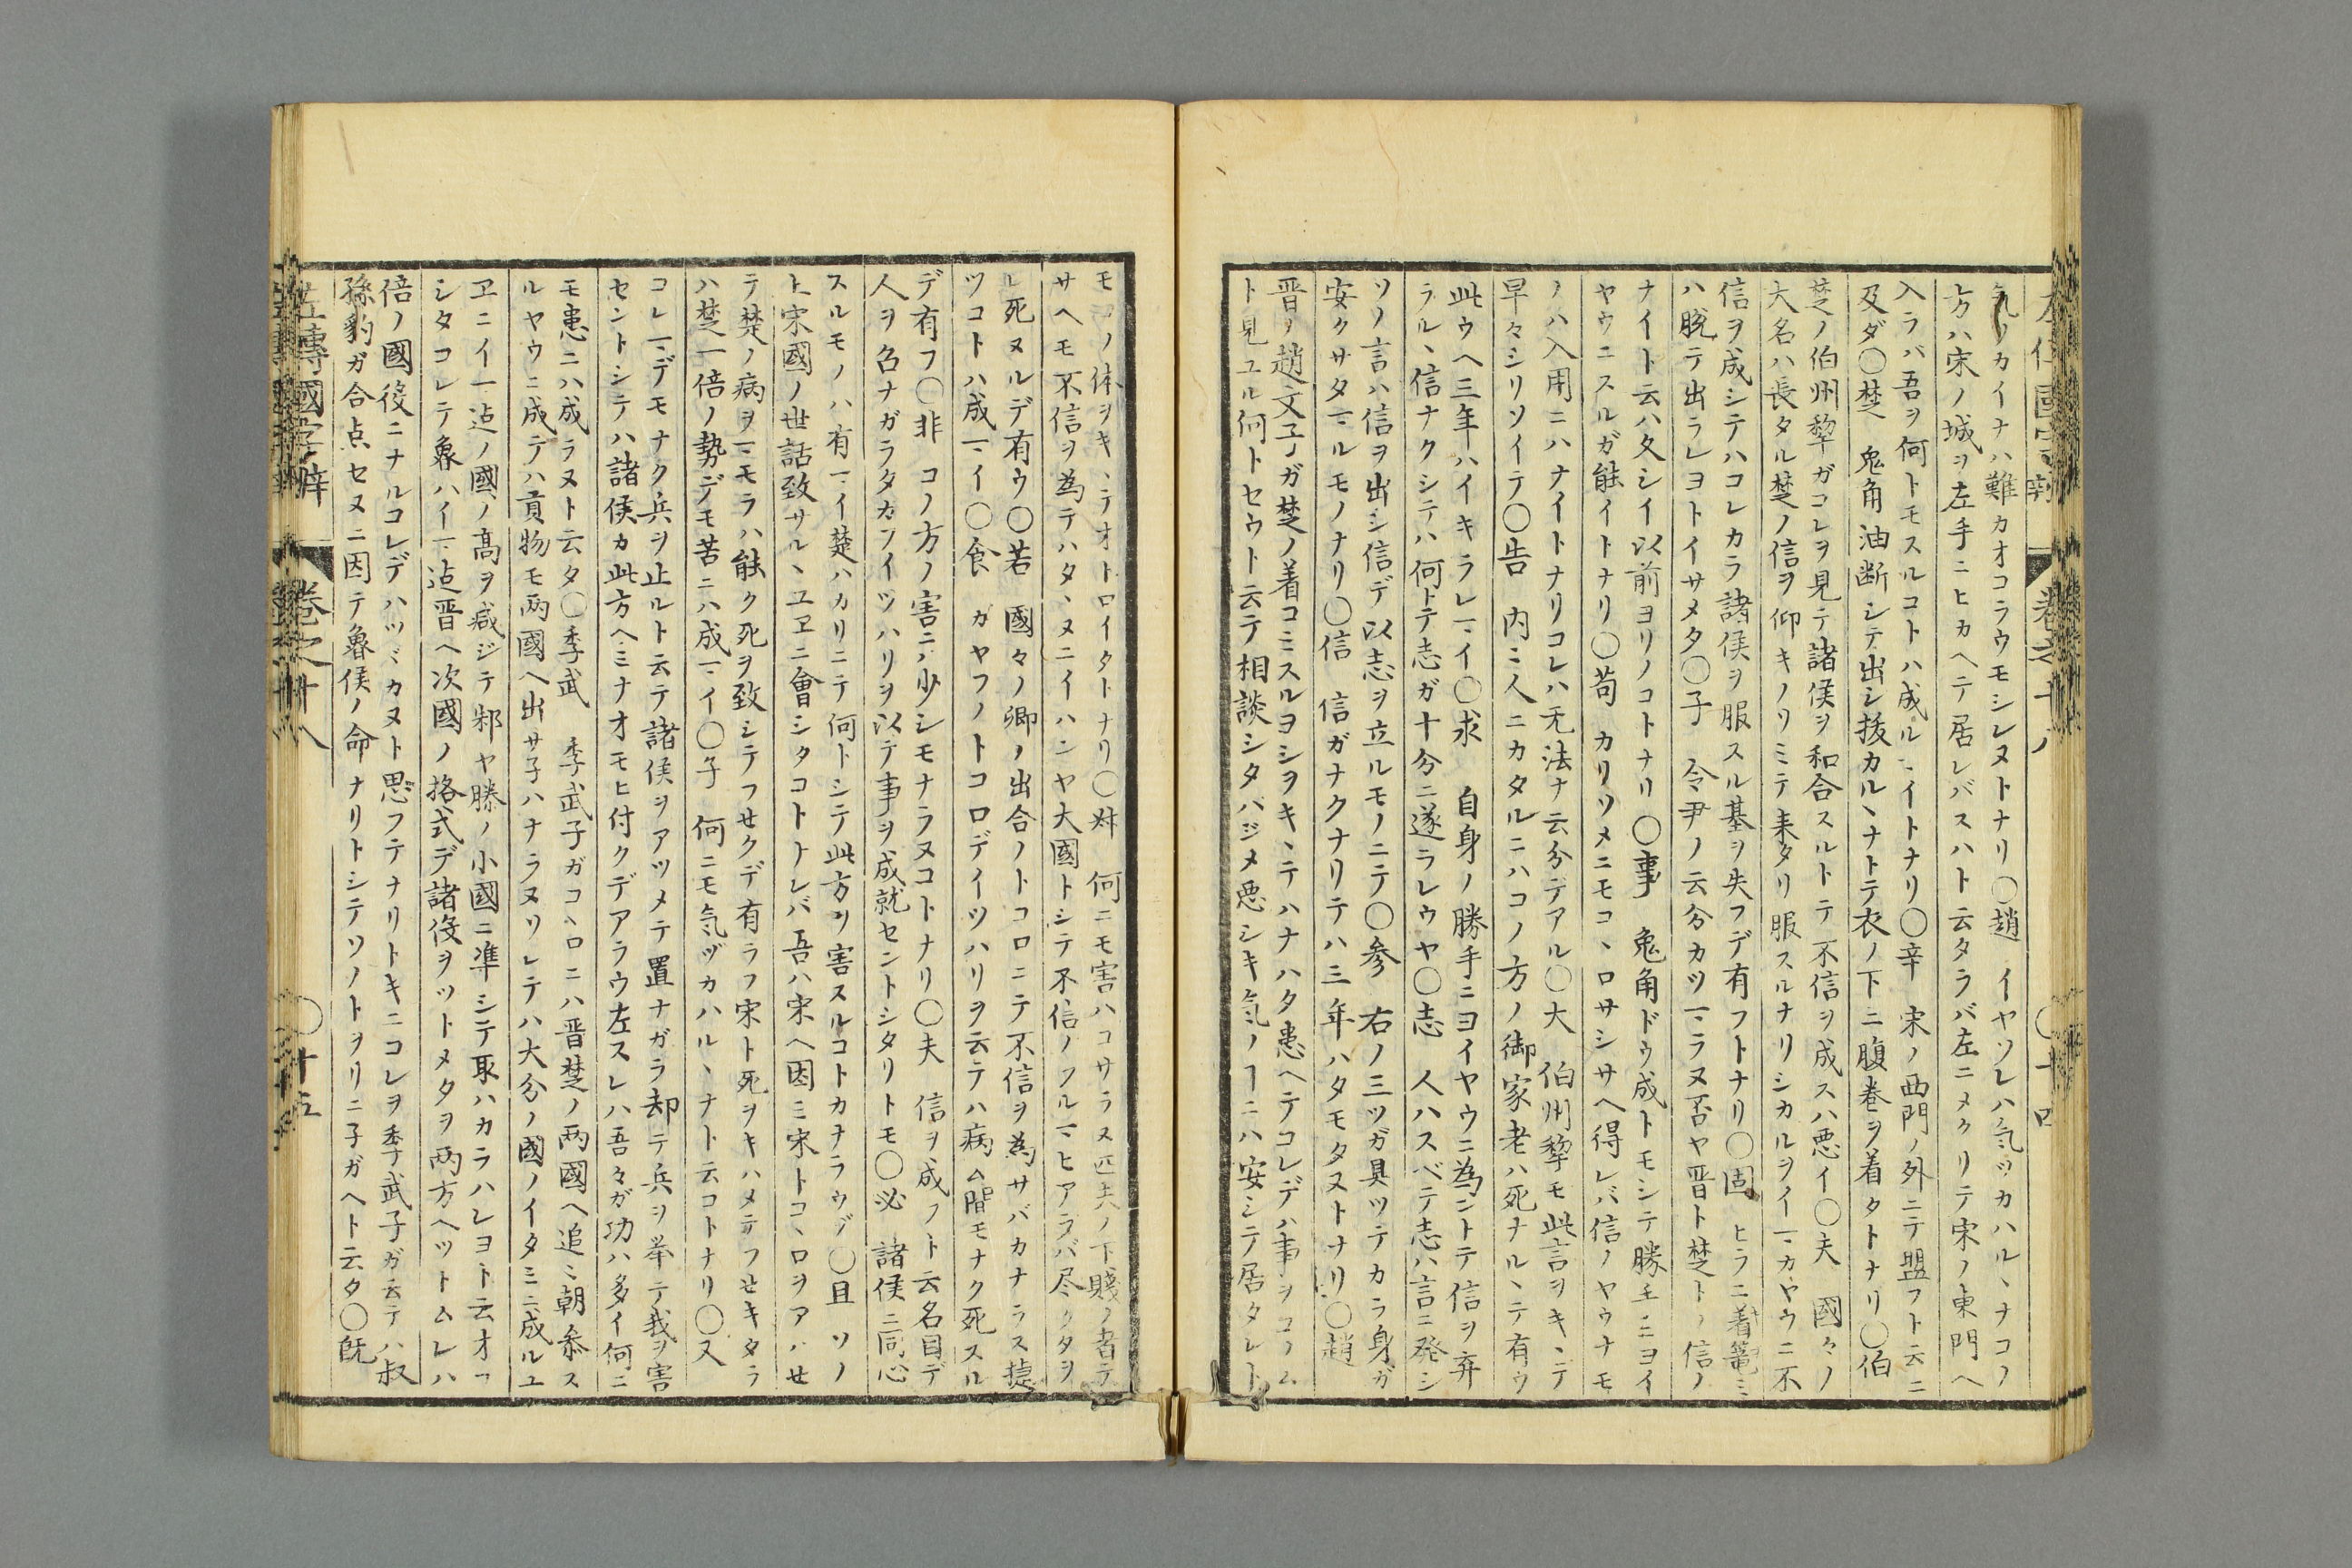 卷之十八
〇十四
気ツカイナハ難カオコラウモシレヌトナリ〇趙 イヤソレハ気ツカハル、ナコノ
レカハ宋ノ城ヲ左手ニヒカヘテ居レバスハト云タラバ左ニメクリテ宋ノ東門ヘ
入ラバ吾ヲ何トモスルコトハ成ルマイトナリ〇辛 宋ノ西門ノ外ニテ盟フト云ニ
及ダ〇楚 兎角油断シテ出シ抜カル、ナトテ衣ノ下ニ腹巻ヲ着タトナリ〇伯
楚ノ伯州犂ガコレヲ見テ諸侯ヲ和合スルトテ不信ヲ成スハ悪イ〇夫 國々ノ
大名ハ長タル楚ノ信ヲ仰キノソミテ来タリ服スルナリシカルヲイマカヤウニ不
信ヲ成シテハコレカラ諸侯ヲ服スル基ヲ失フデ有フトナリ〇固 ヒラニ着籠ミ
ハ脱テ出ラレヨトイサメタ〇子 令尹ノ云分カツマラヌ否ヤ晋ト楚トノ信ノ
ナイト云ハ久シイ以前ヨリノコトナリ〇事 兎角ドウ成トモシテ勝手ニヨイ
ヤウニスルガ能イトナリ〇苟 カリソメニモコ、ロサシサヘ得レバ信ノヤウナモ
ノハ入用ニハナイトナリコレハ无法ナ云分デアル〇大 伯州犂モ此言ヲキ、テ
早々シリソイテ〇告 内ニ人ニカタルニハコノ方ノ御家老ハ死ナル、テ有ウ
此ウヘ三年ハイキラレマイ〇求 自身ノ勝手ニヨイヤウニ為ントテ信ヲ弃
ラル、信ナクシテハ何トテ志ガ十分ニ遂ラレウヤ〇志 人ハスベテ志ハ言ニ発シ
ソノ言ハ信ヲ出シ信デ以志ヲ立ルモノニテ〇参 右ノ三ツガ具ツテカラ身ガ
安クサタマルモノナリ〇信 信ガナクナリテハ三年ハタモタヌトナリ〇趙
晋ノ趙文子ガ楚ノ着コミスルヨシヲキ、テハナハタ患ヘテコレデハ事ヲコノム
ト見ユル何トセウト云テ相談シタバジメ悪シキ気ノ ニハ安シテ居タレト
モコノ体ヲキ、テオトロイタトナリ〇 何ニモ害ハコサラヌ匹夫ノ下賤ノ者テ
サヘモ不信ヲ為テハタ、ヌニイハンヤ大國トシテ不信ノフルマヒアラバ尽クタヲ
レ死ヌルデ有ウ〇若 國々ノ卿ノ出合ノトコロニテ不信ヲ為サバカナラス捷
ツコトハ成マイ〇食 ガヤフノトコロデイツハリヲ云テハ病ム間モナク死スル
デ有フ〇非 コノ方ノ害ニハ少シモナラヌコトナリ〇夫 信ヲ成フト云名目デ
人ヲ召ナガラタガイツハリヲ以テ事ヲ成就セントシタリトモ〇必 諸侯ニ同心
スルモノハ有マイ楚ハカリニテ何トシテ此方ヲ害スルコトカナラウゾ〇且 ソノ
上宋國ノ世話致サル、ユヱニ會シタコト レバ吾ハ宋ヘ因ミ宋トコ、ロヲアハセ
テ楚ノ病ヲマモラハ能ク死ヲ致シテフセクデ有ラフ宋ト死ヲキハメテフセキタラ
ハ楚一倍ノ勢デモ苦ニハ成マイ〇子 何ニモ気ヅカハル、ナト云コトナリ〇又
コレマデモナク兵ヲ止ルト云テ諸侯ヲアツメテ置ナガラ却テ兵ヲ挙テ我ヲ害
セントシテハ諸侯カ此方ヘミナオモヒ付クデアラウ左スレハ吾々ガ功ハ多イ何ニ
モ患ニハ成ラヌト云タ〇季武 季武子ガコ、ロニハ晋楚ノ両國ヘ追ニ朝参ス
ルヤウニ成テハ貢物モ両國ヘ出サ子ハナラヌソレテハ大分ノ國ノイタミニ成ルユ
ヱニイマ迠ノ國ノ髙ヲ减ジテ邾ヤ滕ノ小國ニ準シテ取ハカラハレヨト云オ
シタコレテ魯ハイマ迠晋ヘ次國ノ格式デ諸役ヲツトメタヲ両方ヘツトムレハ
倍ノ國役ニナルコレデハツ、カヌト思フテナリトキニコレヲ季武子ガ云テハ叔
孫豹ガ合点セヌニ因テ魯侯ノ命ナリトシテソノトヲリニ子ガヘト云タ〇既
左傳國字辯
卷之十八
〇十五